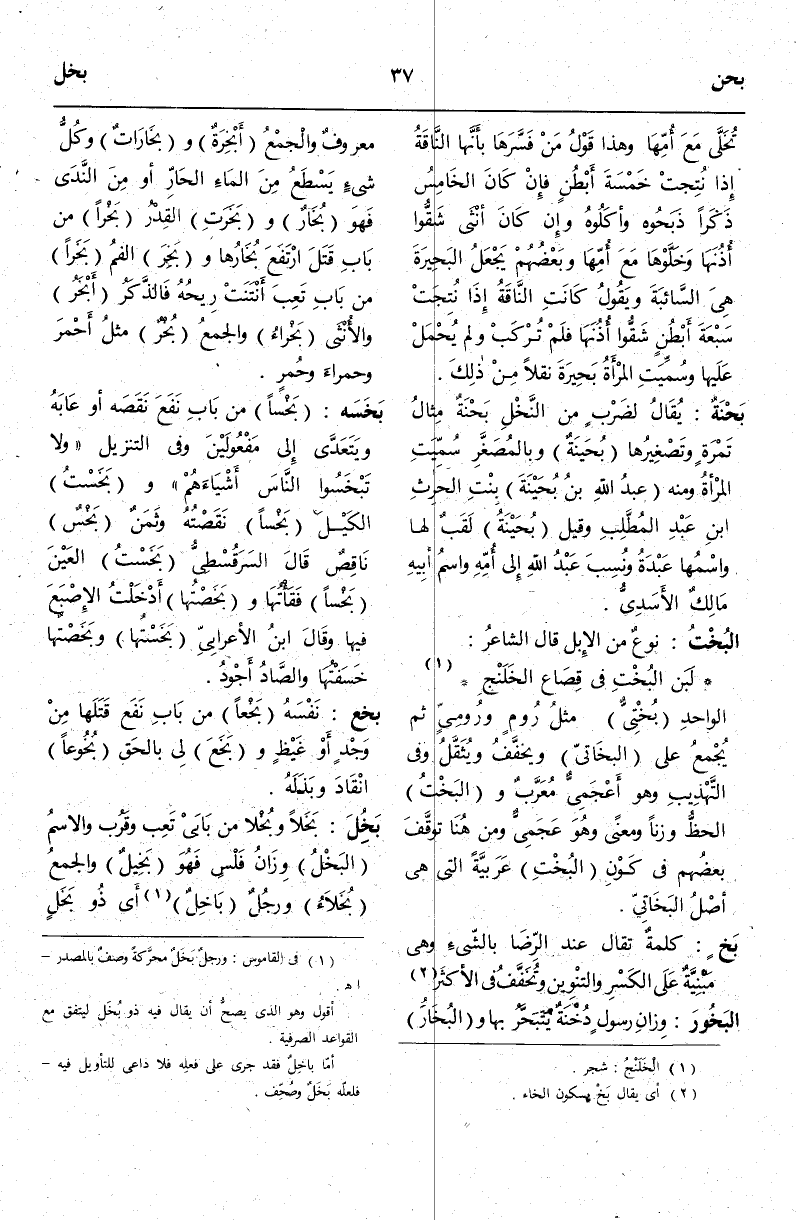 بحن
٣٧
بخل
تُخَلَّى مَعَ أُمِّهَا وهذا قَوْلُ مَنْ فَسَّرَهَا بأَنَّها النَّاقَةُ
إِذا نُتِجتْ خَمْسَةَ أَبْطُنٍ فإِنْ كَانَ الخَامِسُ
ذَكَراً ذَبَحُوه وأَكَلُوهُ وإِن كَانَ أنْثَى شَقُّوا
أُذُنَهَا وَخَلَّوْهَا مَعَ أُمِّهَا وبَعْضُهُمْ يَجْعَلُ البَحِيرَةَ
هِىَ السَّائبَةَ ويَقُولُ كَانَتِ النَّاقَةُ إِذَا نُتِجتْ
سَبْعَةَ أَبْطُنٍ شَقُّوا أُذُنَهَا فَلَمْ تُرْكَبْ ولم يُحْمَلْ
عَلَيها وسُمِّيَتِ المرْأَةُ بَحِيرَةَ نقلاً مِنْ ذٰلِكَ .
بَحْنَةٌ : يُقَالُ لضَرْبٍ من النَّخْلِ بَحْنَةٌ مِثالُ
تَمْرَةٍ وتَصْغِيرُها ( بُحَينَةٌ ) وبالمُصَغَّرِ سُمِّيَتِ
المرْأةُ ومنه ( عبدُ اللهِ بنُ بُحَيْنَةَ ) بِنْتِ الحرِثِ
ابنِ عَبْدِ المُطَّلِبِ وقيل ( بُحَيْنَةُ ) لَقَبٌ لها
واسْمُها عَبْدَةُ ونُسِبَ عَبْدُ اللهِ إِلى أُمِّهِ واسمُ أبِيهِ
مَالِكٌ الأَسَدِىُّ .
البُخْتُ : نوعٌ من الإِبل قال الشاعرُ :
* لَبَنَ البُخْتِ فى قِصَاعِ الخَلَنْجِ * (١)
الواحدِ ( بُخْتِىٌّ ) مثلُ رُومٍ ورُومِىٍّ ثم
يُجْمعُ على ( البخَاتىّ ) ويخفَّفُ ويُثقَّلُ وفى
التَّهْذِيبِ وهو أَعْجَمِىٌّ مُعَرَّبٌ و ( البَخْتُ )
الحظُّ وزناً ومعنًى وهُوَ عَجَمِىٌّ ومن هُنَا توقَّفَ
بعضُهم فى كَوْنِ ( البُخْتِ ) عَرَبِيَّةً التى هى
أصْلُ البَخَاتِىّ .
بَخٍ : كلمةٌ تقال عند الرِّضَا بالشَّىءِ وهى
مَبْنِيَّةٌ عَلَى الكَسْرِ والتنْوِينِ وتُخَفَّفُ فى الأكثَرِ (٢)
البَخُورَ : وِزانِ رسولٍ دُخْنَةٌ يُتَبَخَّرُ بها و ( البُخَارُ )
( ١ ) الخَلَنْجُ : شجر .
( ٢ ) أى يقال بَخْ بسكون الخاء .
معروفٌ والجمْعُ ( أَبْخِرَةٌ ) و ( بخَارَاتٌ ) وكُلُّ
شىءٍ يَسْطَعُ مِنَ الماءِ الحَارِّ أو مِنَ النَّدَى
فَهَو ( بُخَارٌ ) و ( بَخَرَتِ ) القِدْرُ ( بَخْراً ) من
بَابِ قَتَلَ ارْتَفَعَ بُخَارُها و ( بَخِرَ ) الفمُ ( بَخَراً )
من بَابِ تَعِبَ أَنْتَنَتْ رِيحُهُ فَالذَّكَرُ ( أَبْخَرُ )
والأُنْثَى ( بَخْراءُ ) والجمعُ ( بُخْرٌ ) مثلُ أَحْمرَ
وحمراءَ وحُمرٍ .
بَخَسَه : ( بَخْساً ) من بَابِ نَفَعَ نَقَصَه أو عَابَهُ
ويَتَعَدَّى إِلى مَفْعُولَيْنِ وفى التنزيل « ولا
تَبْخَسُوا النَّاسَ أَشْيَاءَهُمْ » و ( بَخَسْتُ )
الكَيْلَ ( بَخْساً ) نَقَصْتُهُ وثَمَنٌ ( بَخْسٌ )
نَاقِصٌ قَالَ السَرَقُسْطِىُّ ( بَخَسْتُ ) العَيْنَ
( بَخْساً ) فَقَأْتُهَا و ( بَخَصْتُها ) أَدْخَلْتُ الإِصْبَعَ
فيها وقَالَ ابنُ الأعرابِىِّ ( بَخَسْتُها ) وبَخَصْتُها
خَسَفْتُهَا والصَّادُ أَجْودُ .
بخع : نَفْسَهُ ( بَخْعاً ) من بَابِ نَفَع قَتَلَها مِنْ
وَجْدٍ أَوْ غَيْظٍ و ( بَخَعَ ) لِى بالحَقِ ( بُخُوعاً )
انْقَادَ وبَذَلَهُ .
بَخِلَ : بَخَلاً وبُخْلا من بَابَىْ تَعِب وقَرُب والاسمُ
( البَخْلُ ) وِزَانُ فَلْسٍ فَهُوَ ( بَخِيلٌ ) والجمعُ
( بُخَلاَءُ ) ورجُلٌ ( بَاخِلٌ ) (١) أَى ذُو بَخَلٍ
( ١ ) فى القاموس : ورجلٌ بَخَلٌ محرَّكةً وصفٌ بالمصدر –
ا هـ .
أقول وهو الذى يصحُّ أن يقال فيه ذو بُخَلٍ ليتفق مع
القواعد الصرفية .
أمّا باخِلٌ فقد جرى على فعلِه فلا داعى للتأويل فيه –
فلعلّه بَخَلٌ وصُحّفَ .